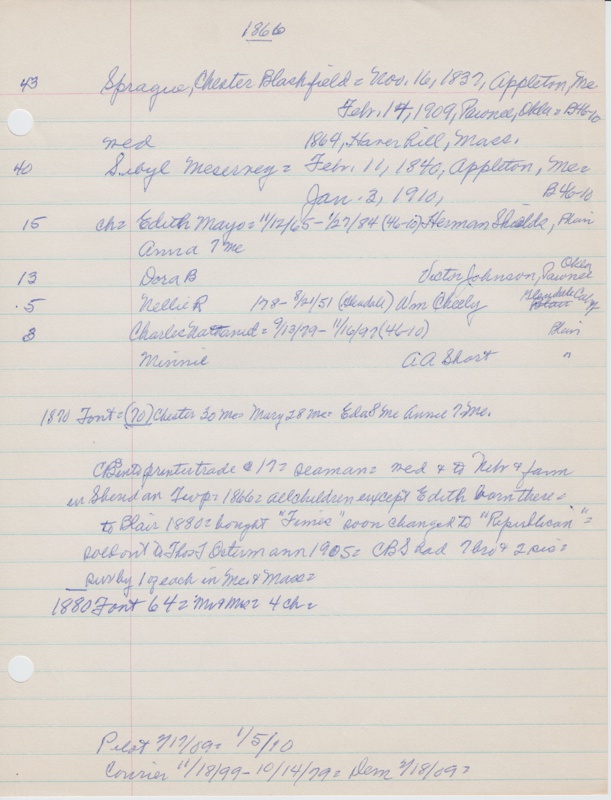 1866
43 Sprague, Chester Blackfield = Nov. 16, 1837, Appleton, Me
Febr. 14, 1909, Pawnee, Okla = B46-10
med 1864, Haverhill, Mass.
40 Sibyl Meservey = Febr. 11, 1840, Appleton, Me =
Jan. 3, 1910, B46-10
15 ch = Edith Mayo = 11/12/65 - 1/27/84 (46-10) Herman Shields, Blair
Anna 7 Me
13 Dora B Victor Johnson, Pawnee Okla
5 Nellie R 178 - 8/21/51 (Glendale) Wm Cheely Glendale Cal
3 Charles Nathaniel = 9/13/79 - 11/16/97 (46-10) Blair
Minnie A A Short "
1870 Font = (70) Chester 30 Me = Mary 28 Me = Eda 8 Me Annie 7 Me.
CB into printer trade @ 17 = seaman = med & to Nebr & farm
in Sheridan Twp = 1866 = all children except Edith born there =
to Blair 1880 = bought "Times" soon changed to "Republican" =
sold out to Thos T Ostermann 1905 = CBS had 7 bro & 2 sis =
surv by 1 of each in Me & Mass =
1880 Font 64 = Mr & Mrs = 4 ch =
Pilot 2/17/09 = 1/5/10
Courier 11/18/99 - 10/14/79 = Dem 2/18/09 =